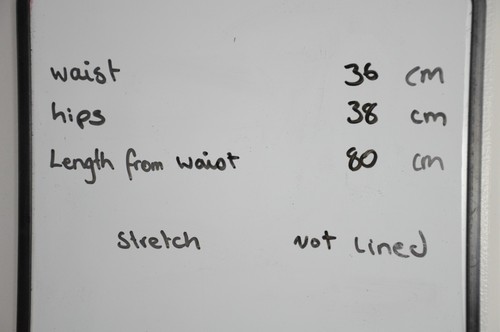 waist 36 cm
hips 38 cm
Length from waist 80 cm
stretch Not Lined